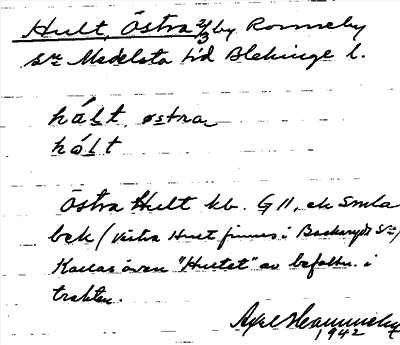 Hult, Östra 2/3 by Ronneby
sn Medelsta hd Blekinge l.
hált, østra
hólt
Östra Hult kb. G 11, ek Småla
bek (Västra Hult finnes i Backaryds sn)
Kallas även "Hultet" av befolkn. i
trakten.
Axel
1942